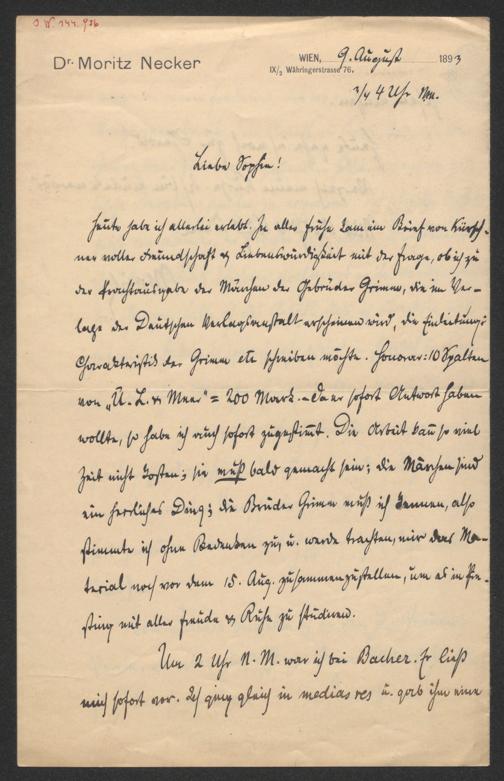 J. N. 144.936
Dr. Moritz Necker
WIEN, 9. August 1893
IX/2 Währingerstrasse 76.
3/4 4 Uhr Nm.
Liebe Sophie!
Heute habe ich allerlei erlebt. In aller Frühe kam ein Brief von Kürsch-
ner voller Freundschaft u Liebenswürdigkeit mit der Frage, ob ich zu
der Prachtausgabe der Märchen der Gebrüder Grimm, die im Ver-
lage der Deutschen Verlagsanstalt erscheinen wird, die Einleitung:
Charakteristik der Grimm etc schreiben möchte. Honorar: 10 Spalten
von „Ü. L. u Meer" = 200 Mark. – Da er sofort Antwort haben
wollte, so habe ich auch sofort zugestimmt. Die Arbeit kann so viel
Zeit nicht kosten; sie muß bald gemacht sein; die Märchen sind
ein herrliches Ding; die Brüder Grimm muß ich kennen, also
stimmte ich ohne Bedenken zu, u. werde trachten, mir das Ma-
terial noch vor dem 15. Aug. zusammenzustellen, um es in Pie-
sting mit aller Freude u Ruhe zu studiren.
Um 2 Uhr N. M. war ich bei Bacher. Er ließ
mich sofort vor. Ich ging gleich in medias res u. gab ihm eine